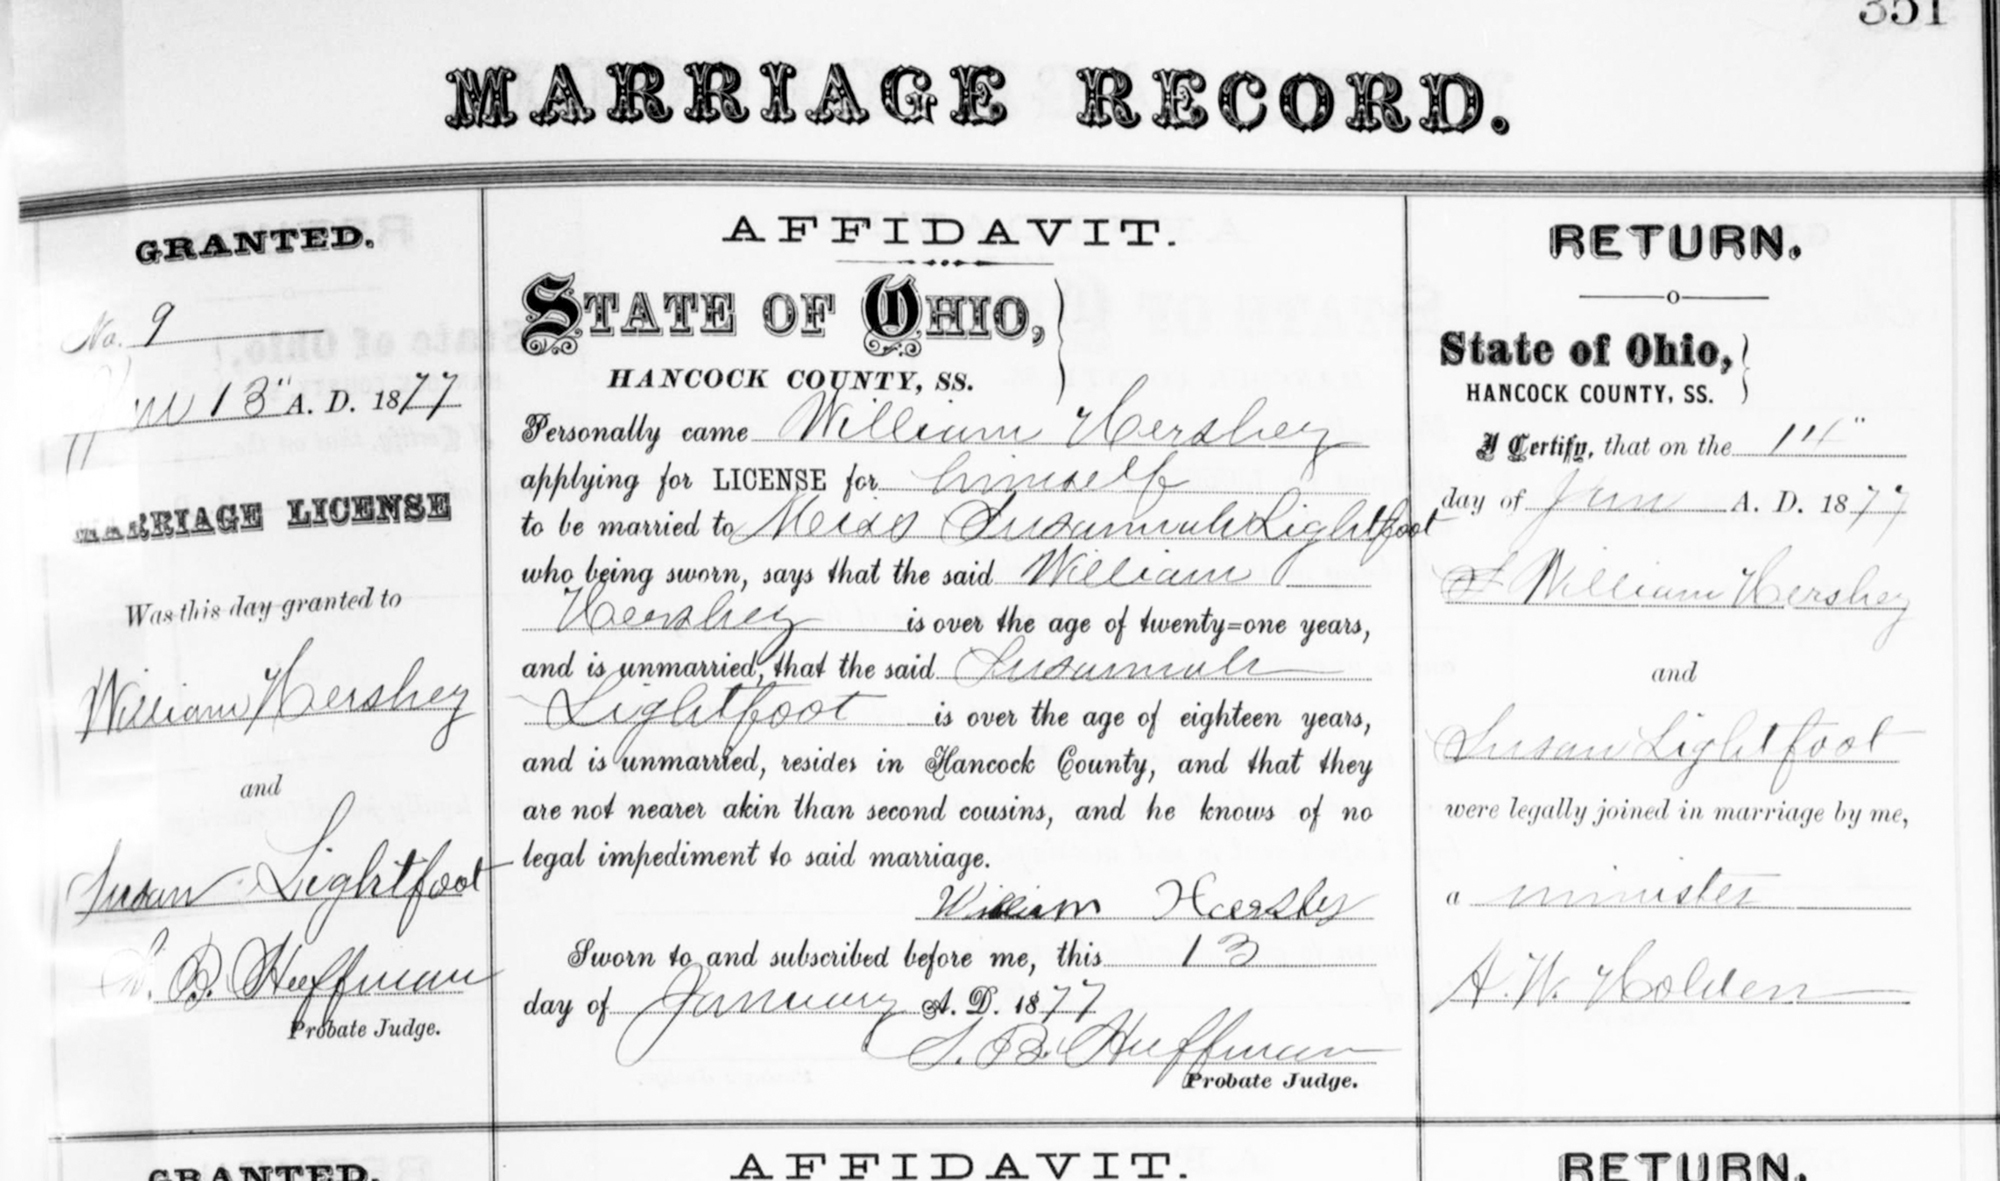 351
MARRIAGE RECORD.
GRANTED.
No. 9
Jan 13" A. D. 1877
MARRIAGE LICENSE
Was this day granted to
William Hershey
and
Susan Lightfoot
S. B. Huffman
Probate Judge.
AFFIDAVIT.
STATE OF OHIO,
HANCOCK COUNTY, SS.
Personally came William Hershey
applying for LICENSE for himself
to be married to Miss Susannah Lightfoot
who being sworn, says that the said William
Hershey is over the age of twenty=one years,
and is unmarried, that the said Susannah
Lightfoot is over the age of eighteen years,
and is unmarried, resides in Hancock County, and that they
are not nearer akin than second cousins, and he knows of no
legal impediment to said marriage.
William Hershey
Sworn to and subscribed before me, this 13
day of January A. D. 1877
S. B. Huffman
Probate Judge.
RETURN.
State of Ohio,
HANCOCK COUNTY, SS.
I Certify, that on the 14"
day of Jan A. D. 1877
William Hershey
and
Susan Lightfoot
were legally joined in marriage by me,
a minister
A. W. Holden
GRANTED.
AFFIDAVIT.
RETURN.